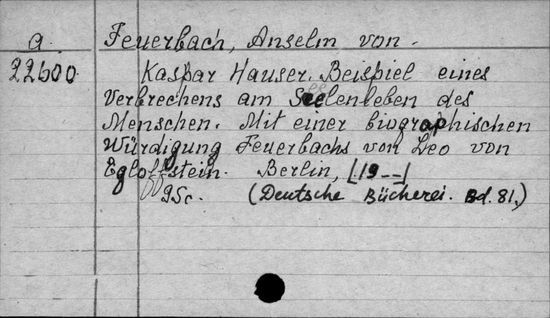 a. Feuerbach, Anselm von.
22600. Kaspar Hauser. Beispiel eines
Verbrechens am Seelenleben des
Menschen. Mit einer biographischen
Würdigung Feuerbachs von Leo von
Egloffstein. Berlin, [19--]
(Deutsche Bücherei. Bd. 81.)